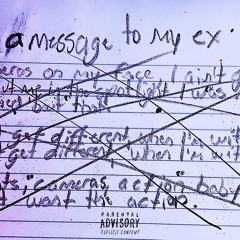 a message to my ex.
on my face I ain't g
me in the spotlight I was
but that
I get different when I'm wit
get different, when I'm wit
cameras, action baby
want the action.
PARENTAL
ADVISORY
EXPLICIT CONTENT